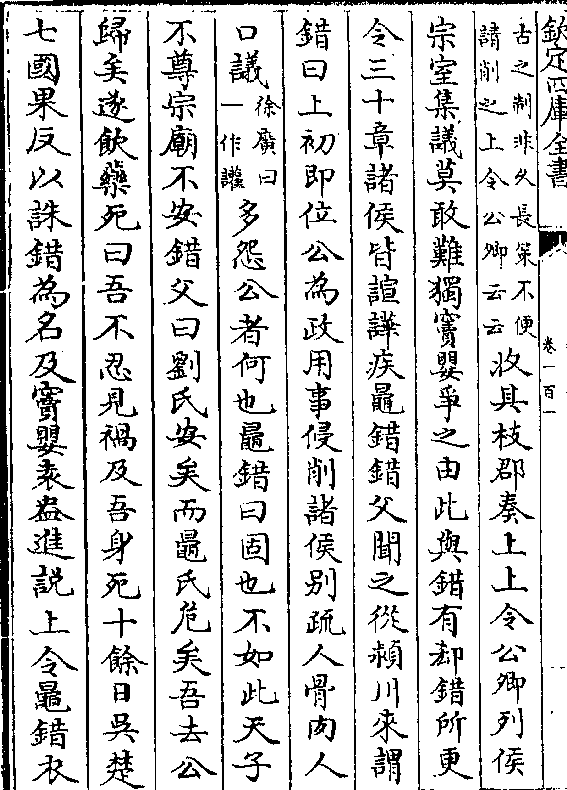 欽定四庫全書
卷一百一
古之制非久長策不便
請削之上令公卿云云
收其枝郡奏上上令公卿列侯
宗室集議莫敢難獨竇嬰爭之由此與錯有郤錯所更
令三十章諸侯皆諠譁疾鼂錯錯父聞之從潁川來謂
錯曰上初即位公為政用事侵削諸侯别疏人骨肉人
口議
徐廣曰
一作讙
多怨公者何也鼂錯曰固也不如此天子
不尊宗廟不安錯父曰劉氏安矣而鼂氏危矣吾去公
歸矣遂飲藥死曰吾不忍見禍及吾身死十餘日吳楚
七國果反以誅錯為名及竇嬰袁盎進説上令鼂錯衣